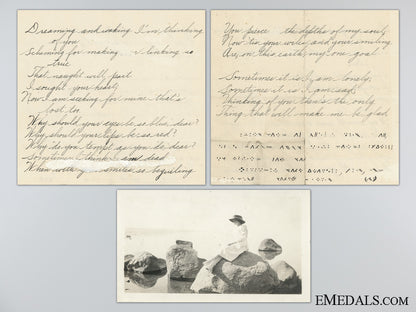 Dreaming and waking I'm thinking
of you
Scheming for making linking so
true
That naught will part
I sought your heart
Now I am seeking for mine that's
lost too
Why should your eyes be so blue, dear?
Why should your lips be so red?
Why do you tempt as you do dear?
Sometimes I think I am dead
When with your smiles so beguiling
You pierce the depths of my soul,
Now tis your wiles and your smiling
Are, on this earth, my one goal
Sometimes it is I am lonely,
Sometimes it is I am sad
Thinking of you than's the only
Thing that will make me be glad
EMEDALS.COM